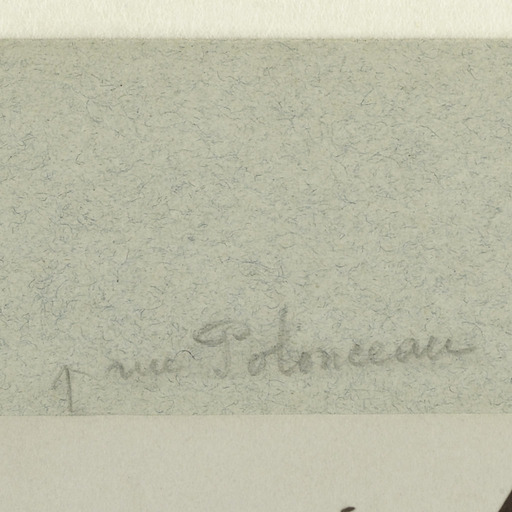 1 rue Polonceau